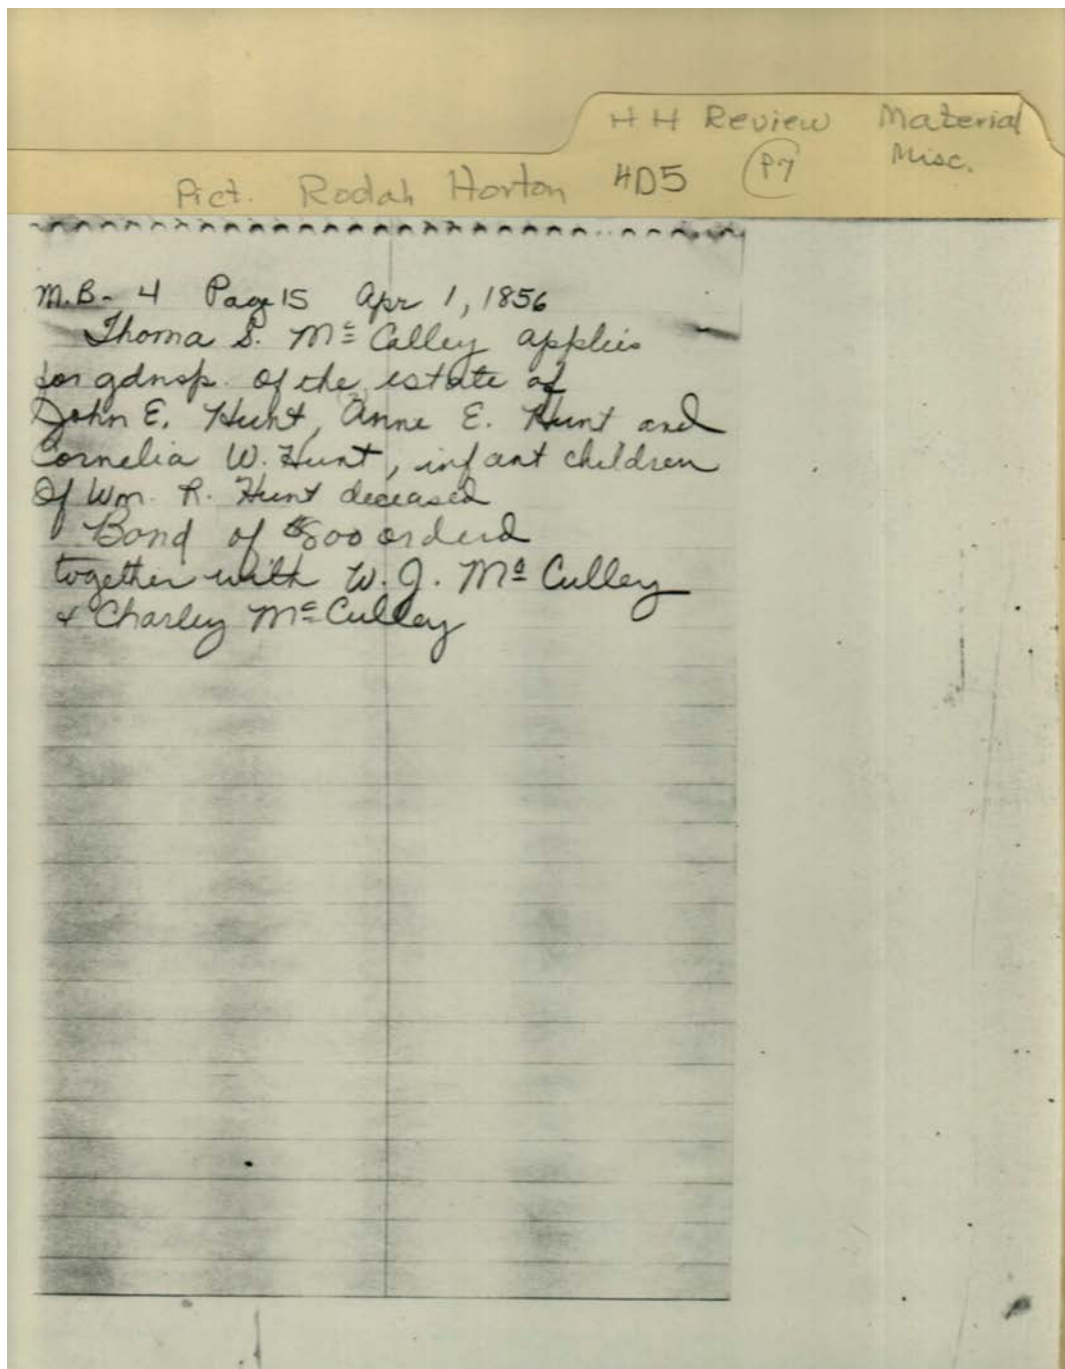 HH Review Material
Misc.
Pict. Rodah Horton 4D5 P7
M.B- 4 Page 15 Apr 1, 1856
Thoma S. Mc Calley applies
for gdnsp. of the estate of
John E. Hunt, Anne E. Hunt and
Cornelia W. Hunt, infant children
Of Wm. R. Hunt deceased
Bond of $800 orderd
together with W. J. Mc Culley
& Charley Mc Culley